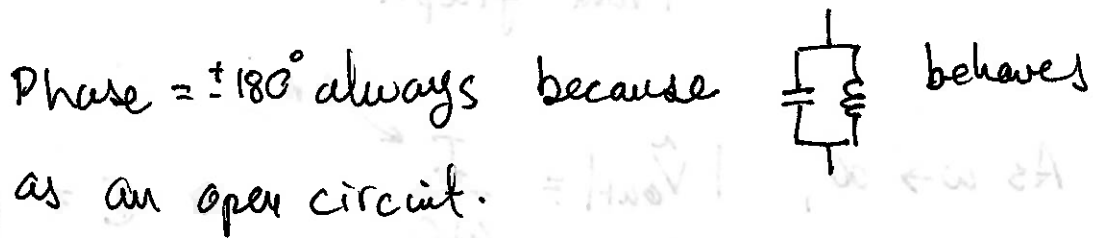 Phase = ±180° always because behaves
as an open circuit.